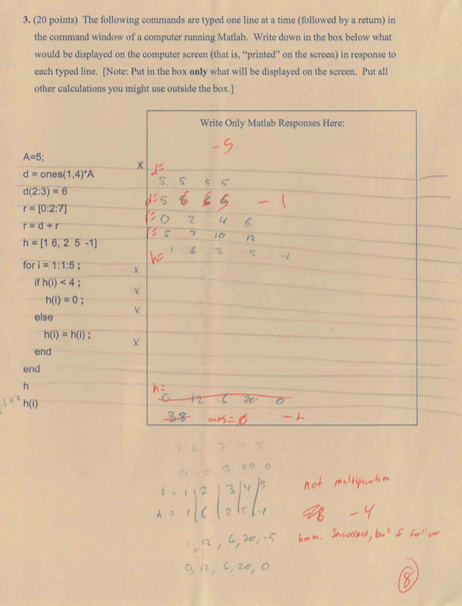 3. (20 points) The following commands are typed one line at a time (followed by a return) in
the command window of a computer running Matlab. Write down in the box below what
would be displayed on the computer screen (that is, "printed" on the screen) in response to
each typed line. [Note: Put in the box only what will be displayed on the screen. Put all
other calculations you might use outside the box.]
Write Only Matlab Responses Here:
-5
A=5;
d = ones(1,4)*A
X
d=
5 5 5 5
d(2:3) = 6
d=5 6 6 5 -1
r = [0:2:7]
r=0 2 4 6
r = d + r
r=5 7 10 12
h = [1 6, 2 5 -1]
h= 1 6 2 5 -1
for i = 1:1:5 ;
X
if h(i) < 4 ;
X
h(i) = 0 ;
X
else
h(i) = h(i) ;
X
end
end
h
h=
0 12 6 20 0
h(i)
38 ans=0 -1
1 2 3 4 5
0 0 0 20 0
i = 1 2 3 4 5
h = 1 6 2 5 -1
not multiplication
-4
1, 12, 6, 20, -5
hmm. Incorrect, but I follow
0, 12, 6, 20, 0
8